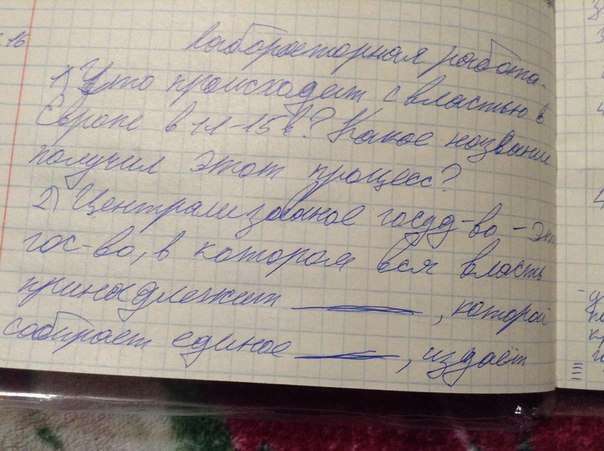 16
Лабораторная работа.
1) Что происходит с властью в
Европе в 11-15 в? Какое название
получил этот процесс?
2) Централизованое госуд-во - это
гос-во, в котором вся власть
принадлежит ______, который
собирает единое ______, издаёт